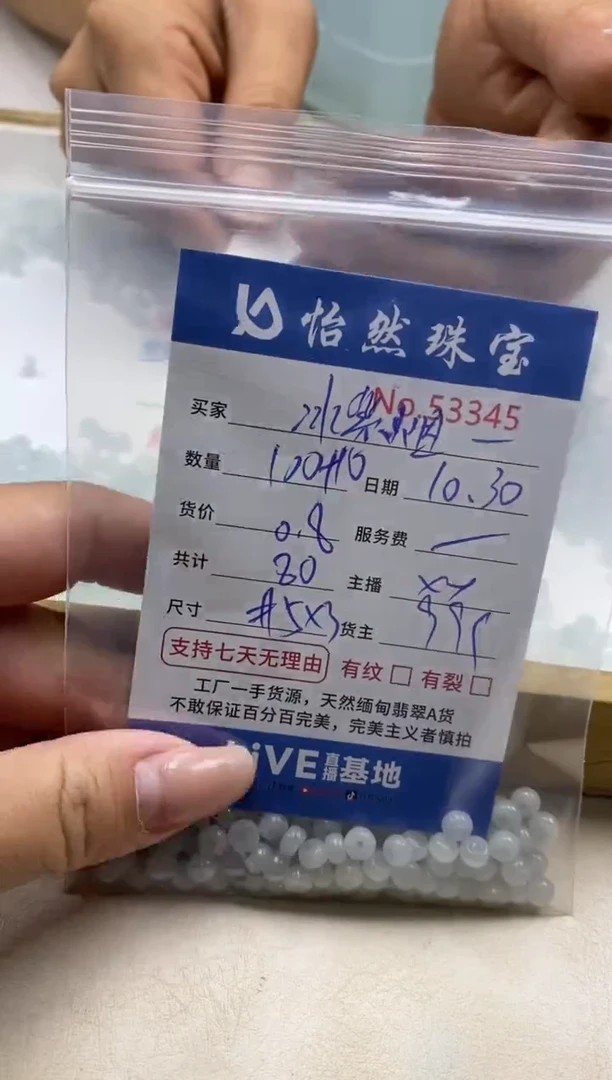 怡然珠宝
No.53345
买家
数量 100 日期 10.30
货价 0.8 服务费 —
共计 80 主播
尺寸 #5×3 货主
支持七天无理由 有纹 有裂
工厂一手货源，天然缅甸翡翠A货
不敢保证百分百完美，完美主义者慎拍
LiVE直播基地